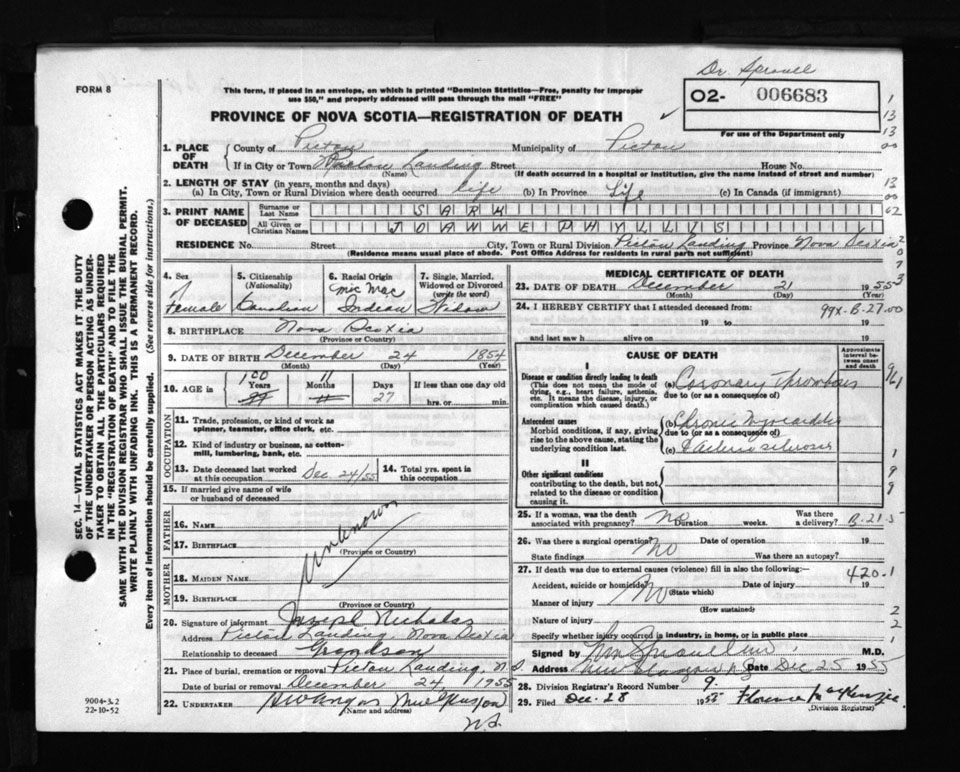 Dr. Sproull
FORM 8
This form, if placed in an envelope, on which is printed "Dominion Statistics—Free, penalty for improper
use $50," and properly addressed will pass through the mail "FREE"
O2- 006683
For use of the Department only
PROVINCE OF NOVA SCOTIA—REGISTRATION OF DEATH
1. PLACE OF DEATH
County of Pictou Municipality of Pictou
If in City or Town Pictou Landing Street House No.
(Name) (If death occurred in a hospital or institution, give the name instead of street and number)
2. LENGTH OF STAY (in years, months and days)
(a) In City, Town or Rural Division where death occurred life (b) In Province Life (c) In Canada (if immigrant)
3. PRINT NAME OF DECEASED
Surname or Last Name SARK
All Given or Christian Names PHYLLIS
RESIDENCE No. Street City, Town or Rural Division Pictou Landing Province Nova Scotia
(Residence means usual place of abode. Post Office Address for residents in rural parts not sufficient)
4. Sex Female
5. Citizenship (Nationality) Canadian
6. Racial Origin Mic Mac Indian
7. Single, Married, Widowed or Divorced (write the word) Widow
8. BIRTHPLACE Nova Scotia
(Province or Country)
9. DATE OF BIRTH December 24 1854
(Month) (Day) (Year)
10. AGE in 100 Years 11 Months 27 Days If less than one day old
hrs. or min.
OCCUPATION
11. Trade, profession, or kind of work as
spinner, teamster, office clerk, etc.
12. Kind of industry or business, as cotton-
mill, lumbering, bank, etc.
13. Date deceased last worked
at this occupation Dec. 24/55
14. Total yrs. spent in
this occupation
15. If married give name of wife
or husband of deceased
FATHER
16. NAME Unknown
17. BIRTHPLACE
(Province or Country)
MOTHER
18. MAIDEN NAME
19. BIRTHPLACE
(Province or Country)
20. Signature of informant Joseph Nicholas
Address Pictou Landing Nova Scotia
Relationship to deceased Grandson
21. Place of burial, cremation or removal Pictou Landing, N.S.
Date of burial or removal December 24 1955
22. UNDERTAKER
(Name and address)
N.S.
MEDICAL CERTIFICATE OF DEATH
23. DATE OF DEATH December 21 1955
(Month) (Day) (Year)
24. I HEREBY CERTIFY that I attended deceased from:
99X-B-27.00
19 to 19
and last saw h alive on 19
CAUSE OF DEATH
Approximate interval between onset and death
I
Disease or condition directly leading to death
(This does not mean the mode of
dying, e.g., heart failure, asthenia,
etc. It means the disease, injury, or
complication which caused death.)
(a) Coronary Thrombosis
due to (or as a consequence of)
Antecedent causes
Morbid conditions, if any, giving
rise to the above cause, stating the
underlying condition last.
(b) Chronic Myocarditis
due to (or as a consequence of)
(c) Arteriosclerosis
II
Other significant conditions
contributing to the death, but not
related to the disease or condition
causing it.
25. If a woman, was the death
associated with pregnancy? No Duration weeks. Was there
a delivery? B-21-5
26. Was there a surgical operation? No Date of operation 19
State findings Was there an autopsy?
27. If death was due to external causes (violence) fill in also the following:—
420.1
Accident, suicide or homicide? No Date of injury 19
(State which)
Manner of injury
(How sustained)
Nature of injury
Specify whether injury occurred in industry, in home, or in public place
Signed by M.D.
Address New Glasgow Date Dec 25 1955
28. Division Registrar's Record Number 9.
29. Filed Dec. 28 1955 Florence MacKenzie
(Division Registrar)
SEC. 14—VITAL STATISTICS ACT MAKES IT THE DUTY
OF THE UNDERTAKER OR PERSON ACTING AS UNDER-
TAKER TO OBTAIN ALL THE PARTICULARS REQUIRED
IN THE "REGISTRATION OF DEATH" AND TO FILE THE
SAME WITH THE DIVISION REGISTRAR WHO SHALL ISSUE THE BURIAL PERMIT.
WRITE PLAINLY WITH UNFADING INK. THIS IS A PERMANENT RECORD.
Every item of information should be carefully supplied. (See reverse side for instructions.)
9004-3.2
22-10-52